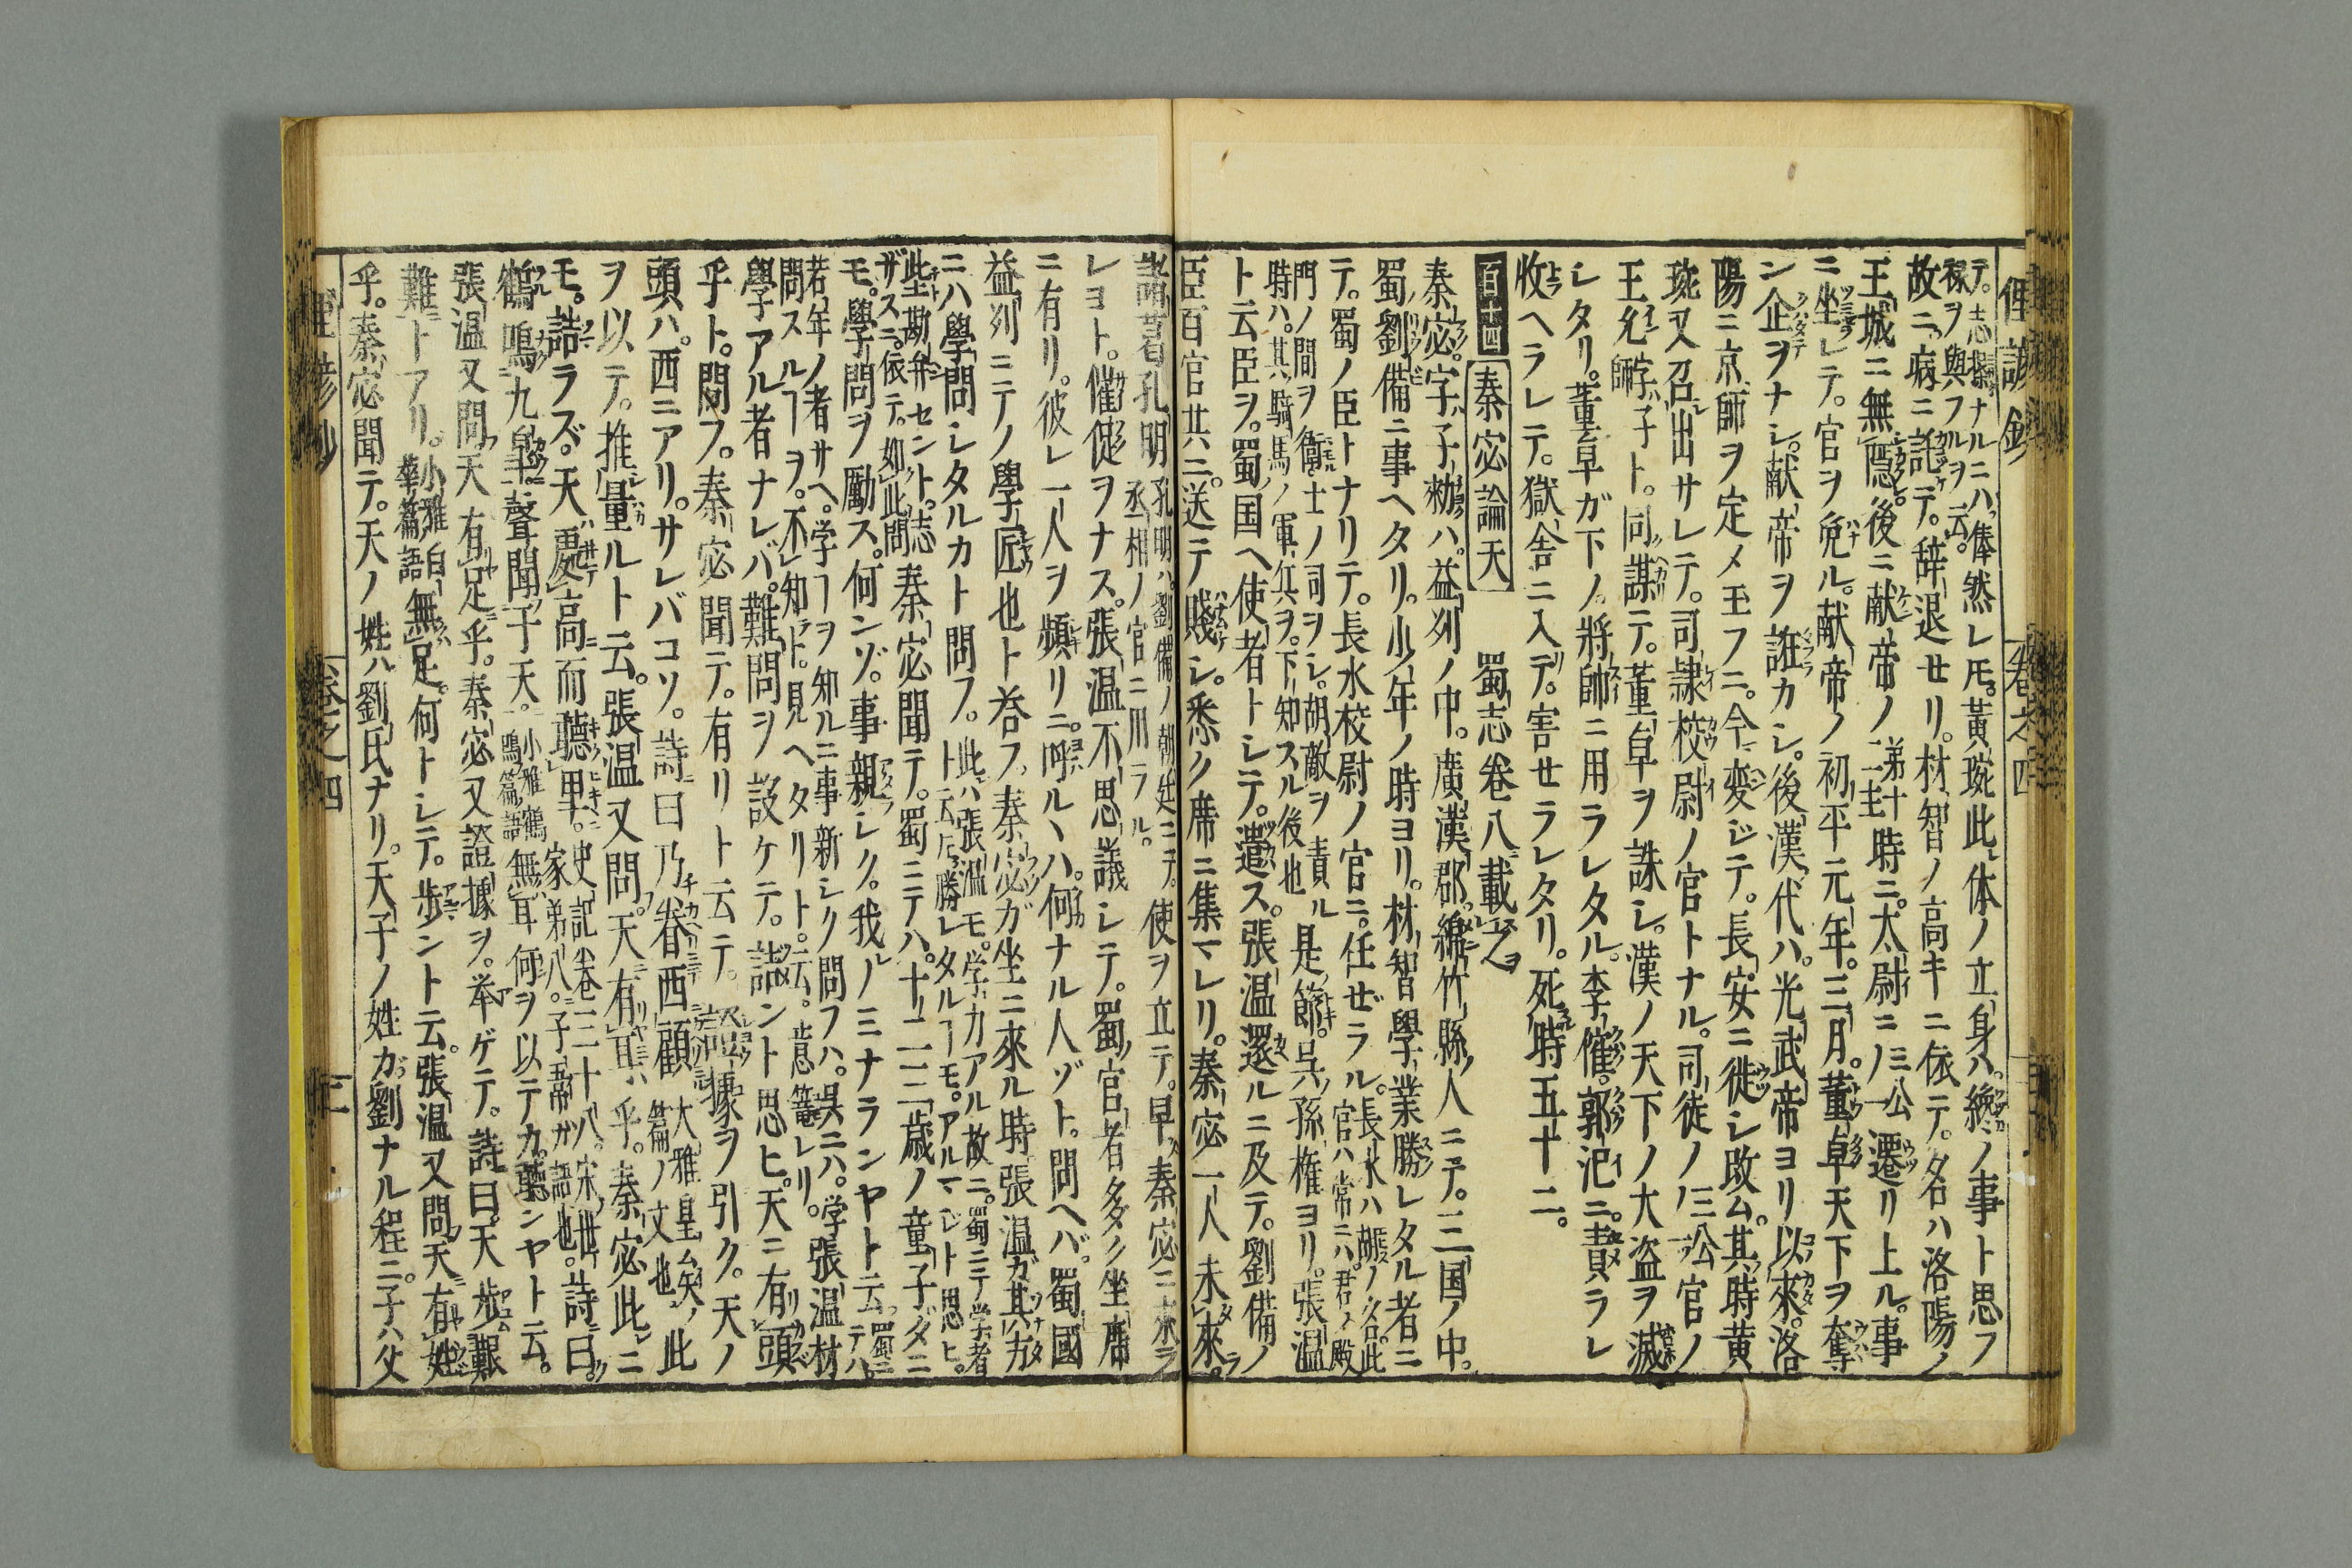 俚諺鈔 卷之四
テ。志操ナルニハ、俸
祿ヲ與フルヲ云。
然レ𪜈。黄琬此体ノ立身ハ。纔ノ事ト思フ
故ニ。病ニ託テ。辞退セリ。材智ノ高キニ依テ。名ハ洛陽ノ
王城ニ無隠。後ニ献帝ノ第十二主時ニ。太尉ニ三公ノ一遷リ上ル。事
ニ坐レテ。官ヲ免ル。献帝ノ初平元年。三月。董卓天下ヲ奪
ン企ヲナシ。献帝ヲ誑カシ。後漢代ハ。光武帝ヨリ以來。洛
陽ニ京師ヲ定メ玉フニ。今変ジテ。長安ニ徙シ改ム。其時黄
琬又召出サレテ。司隷校尉ノ官トナル。司徒ノ三公ノ一官ノ
王允字ハ子師ト。同謀テ。董卓ヲ誅シ。漢ノ天下ノ大盗ヲ滅
レタリ。董卓ガ下ノ。將帥ニ用ラレタル。李傕。郭汜ニ。責ラレ
收ヘラレテ。獄舎ニ入テ。害セラレタリ。死時五十二。
百十四 秦宓論天 蜀志卷八載之
秦宓。字ハ子勑ハ。益州ノ中。廣漢郡。綿竹縣ノ人ニテ。三国ノ中。
蜀ノ劉備ニ事ヘタリ。少年ノ時ヨリ。材智學業勝レタル者ニ
テ。蜀ノ臣トナリテ。長水校尉ノ官ニ。任ゼラル。長水ハ胡ノ名。此官ハ常ニハ。君ノ殿
門ノ間ヲ衞士ノ司ヲシ。胡敵ヲ責ル
時ハ。其騎馬ノ軍兵ヲ。下知スル後也
是節。呉ノ孫権ヨリ。張温
ト云臣ヲ。蜀国ヘ使者トシテ。遣ス。張温還ルニ及テ。劉備ノ
臣百官共ニ。送テ賤シ。悉ク席ニ集マレリ。秦宓一人未來。
諸葛孔明孔明ハ劉備ノ朝廷ニテ。
丞相ノ官ニ用ラル。使ヲ立テ。早ク秦宓ニ來ラ
レヨト。催促ヲナス。張温不思議シテ。蜀ノ官者多ク坐席
ニ有リ。彼レ一人ヲ頻リニ。呼ルヽハ。何ナル人ゾト。問ヘバ。蜀國
益州ニテノ學匠也ト荅フ。秦宓ガ坐ニ來ル時張温ガ其方
ニハ學問シタルカト問フ。此ハ張温モ。学力アル故ニ。蜀ニテ学者
ト云ニ勝レタルヿモ。アルマジト思ヒ。
此勘弁セント。志
ザスニ。依テ。如此問
秦宓聞テ。蜀ニテハ。十二三歳ノ童子ダニ
モ。學問ヲ勵ス。何ンゾ。事親シク。我ノミナランヤト云。蜀ニテハ。
若年ノ者サヘ。学ヿヲ知ルニ事新シク問フハ。呉ニハ。学
問スルヿヲ。不知ト。見ヘタリト。云。意篭レリ。
張温材
學アル者ナレバ。難問ヲ設ケテ。詰ント思ヒ。天ニ有頭
乎ト。問フ。秦宓聞テ。有リト云テ。證據ヲ引ク。天ノ
頭ハ。西ニアリ。サレバコソ。詩曰乃眷西顧大雅皇矣ノ
篇ノ文也此
ヲ以テ。推量ルト云。張温又問。天有耳乎。秦宓此ニ
モ。詰ラズ。天ハ處高而聽卑。史記卷三十八。宋世
家弟八。子韋ガ語也。詩曰。
鶴鳴九皐。聲聞于天。小雅鶴
鳴篇語無耳何ヲ以テカ。聽ンヤト云。
張温又問。天有足乎。秦宓又證據ヲ。挙ゲテ。詩曰。天歩艱
難トアリ。小雅白
華篇語無足。何トシテ。歩ント云。張温又問。天有姓
乎。秦宓聞テ。天ノ姓ハ劉氏ナリ。天子ノ姓ガ劉ナル程ニ。子ハ父
俚諺鈔 卷之四